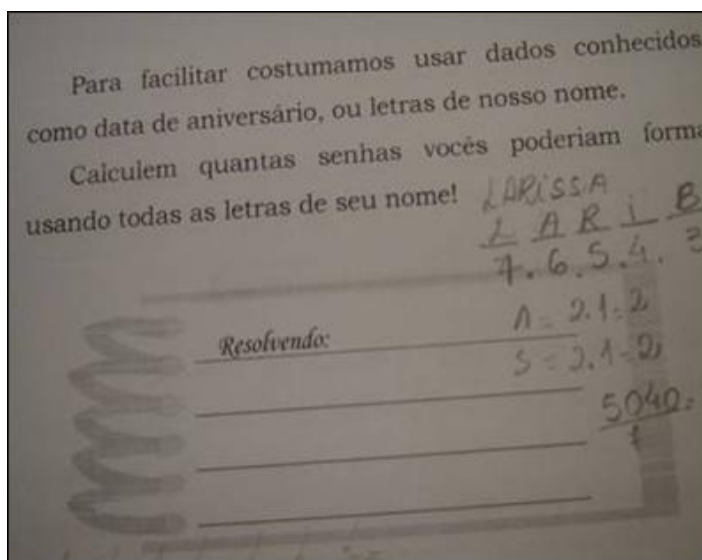 Para facilitar costumamos usar dados conhecidos
como data de aniversário, ou letras de nosso nome.
Calculem quantas senhas vocês poderiam forma
usando todas as letras de seu nome!
LARISSA
L A R I
7.6.5.4. 3
Resolvendo:
A = 2.1=2
S = 2.1=2
5040=